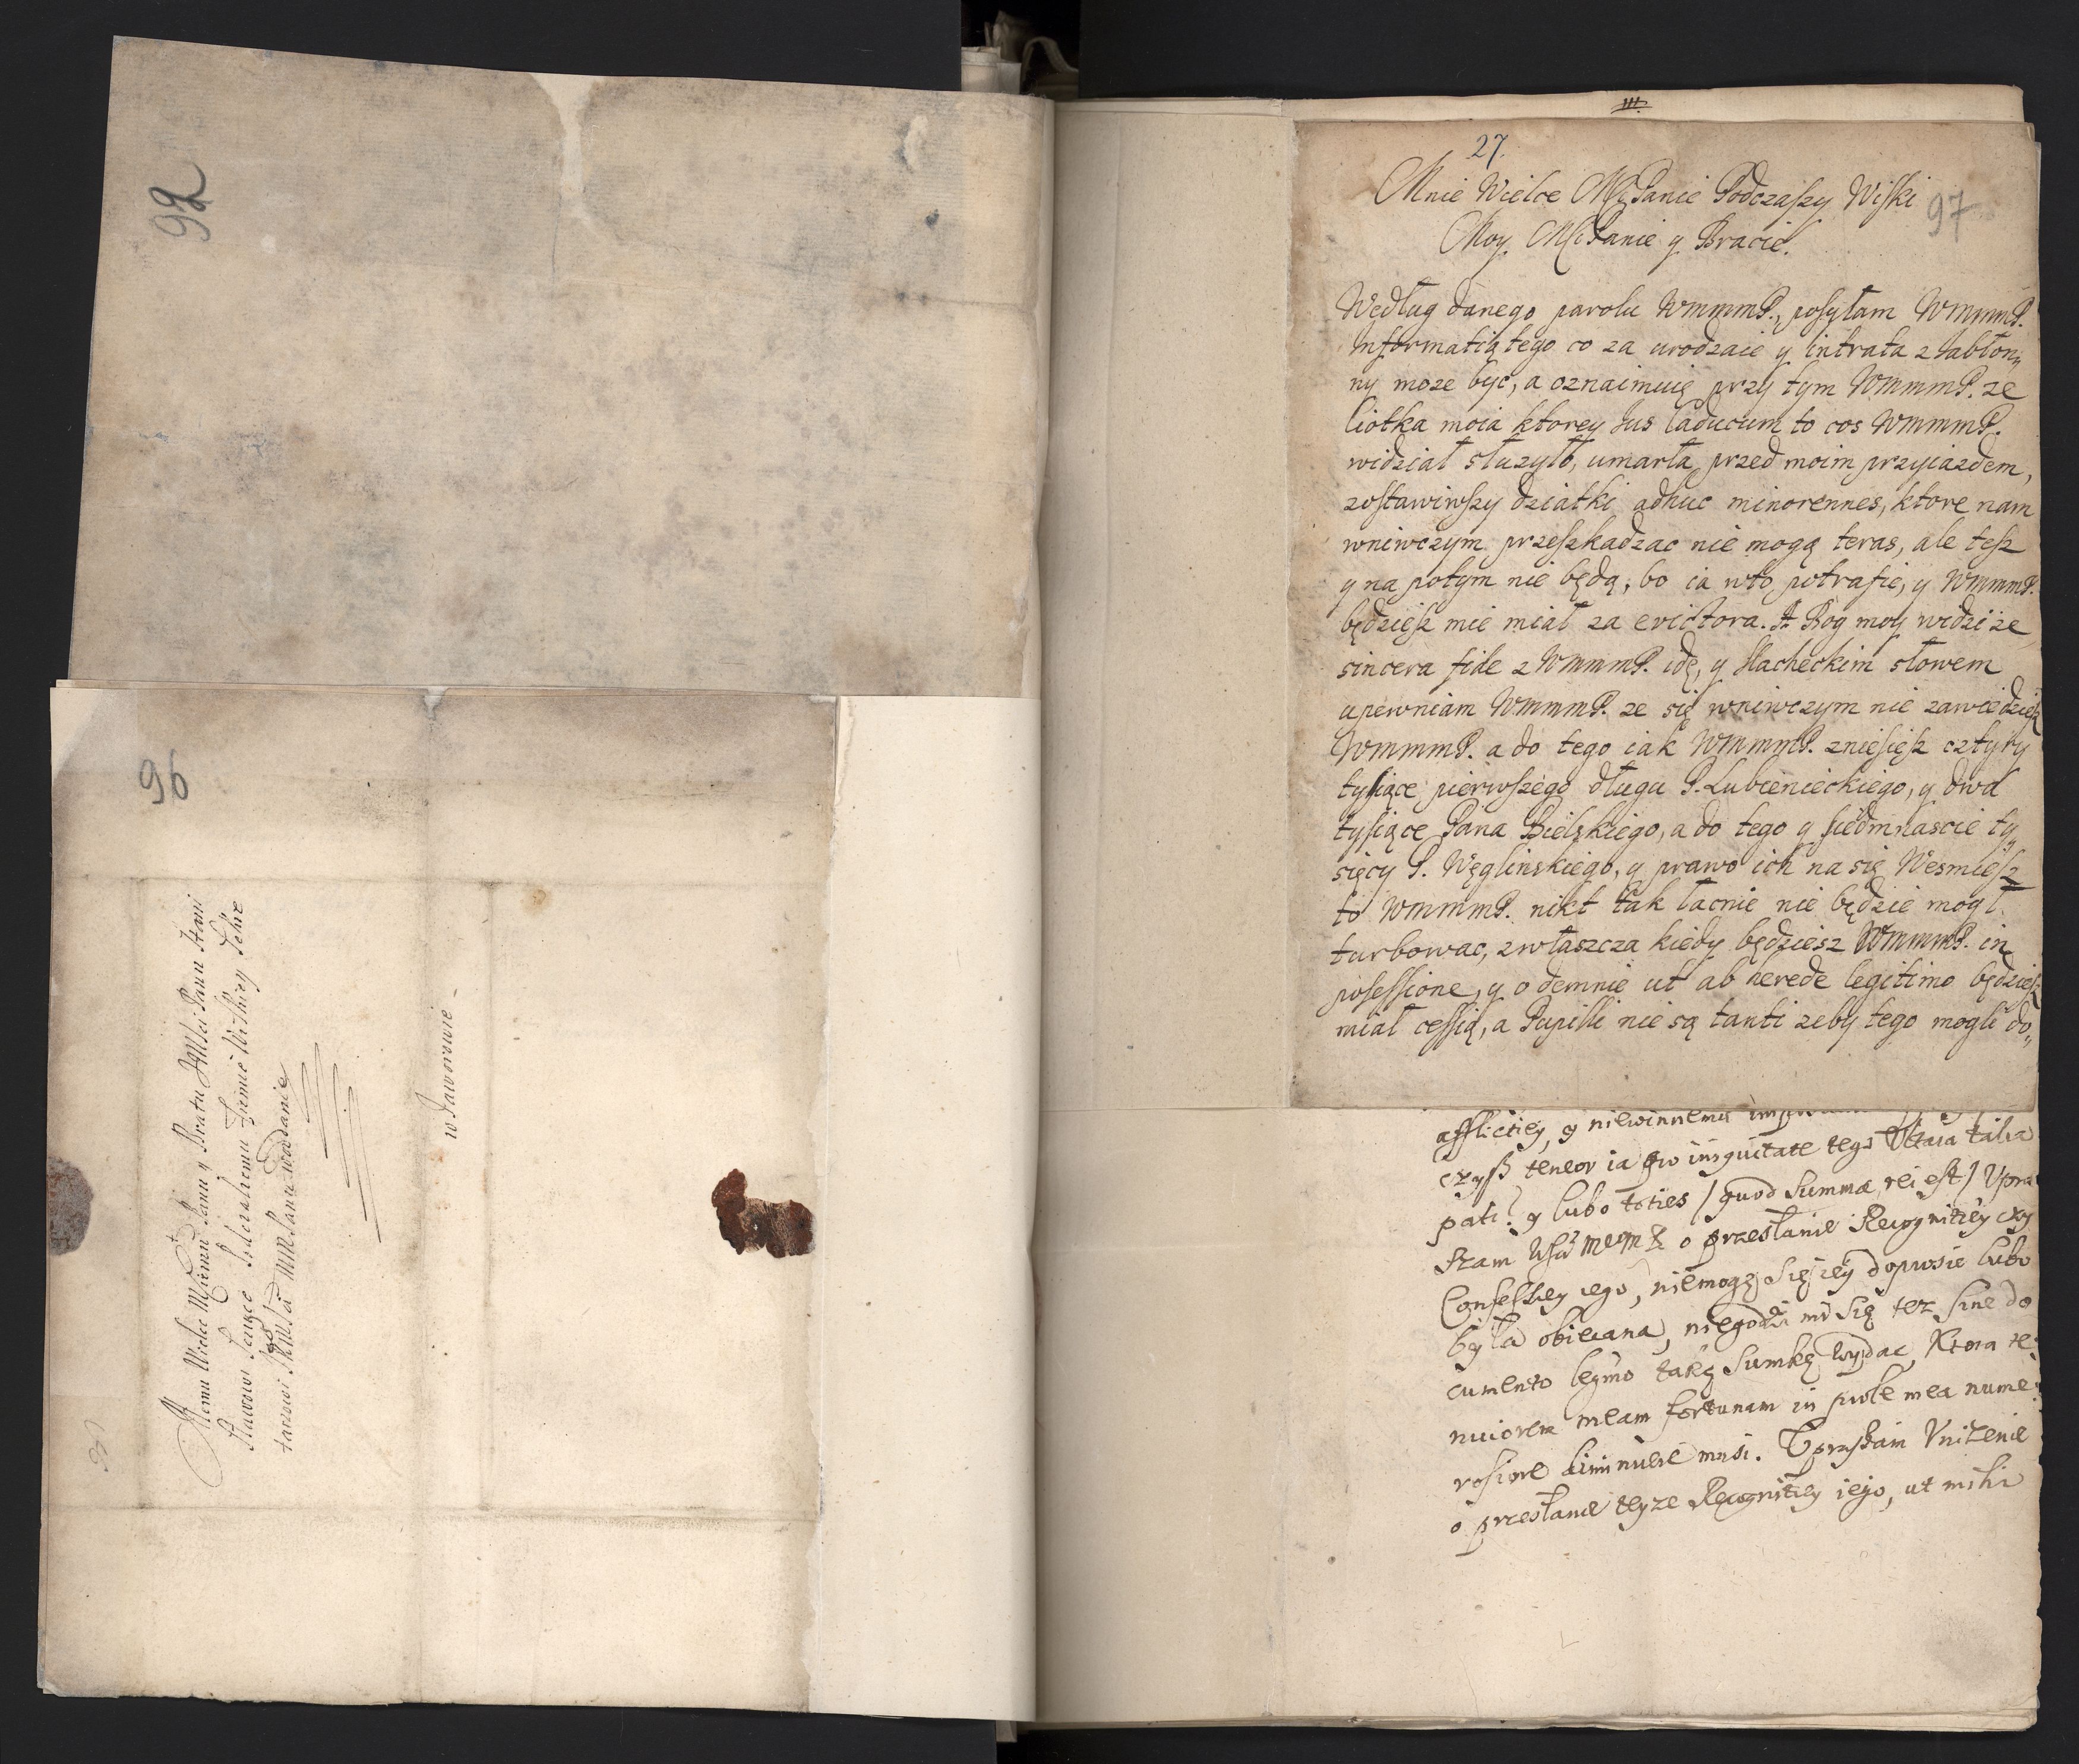 92
96
Memu Wielce Msciemu Panu y Bratu JMsci Panu Stani
sławowi Podczaszemu Ziemie Wiskiey Sekre
tarzowi JKMsci MMPanu oddanie
w Jaworowie
III.
27.
97
Mnie Wielce Msci Panie Podczaszy Wiski
Moy Msci Panie y Bracie.
Według danego parolu WmmmP., posyłam WmmmP.
Informatią tego co za urodzaie y intrata z Iabłon„
ny moze byc, a oznaimuię przy tym WmmmP. ze
Ciotka moia ktorey Ius Caducum to cos WmmmP.
widział słuzyło, umarła przed moim przyiazdem,
zostawiwszy dziatki adhuc minorennes, ktore nam
wniwczym przeszkadzac nie mogą teras, ale tesz
y na potym nie będą, bo ia wto potrafie, y WmmmP.
będziesz mie miał za evictora. A Bog moy widzi ze
sincera fide z WmmmP. idę, y slacheckim słowem
upewniam WmmmP. ze się wniwczym nie zawiedziesz
WmmmP. a do tego iak WmmmP. zniesiesz cztyry
tysiące pierwszego długu P. Lubienieckiego, y dwa
tysiące Pana Bielskiego, a do tego y siedmnascie ty„
sięcy P. Węglinskiego, y prawo ich na się Wesmiesz
to WmmmP. nikt tak łacnie nie będzie mogł
turbowac, zwłaszcza kiedy będziesz WmmmP. in
posessione, y odemnie ut ab herede legitimo będziesz
miał cessią, a Pupilli nie są tanti zeby tego mogli do„
afflictiey, y niewinnemu
czysz teneor ia pro iniquitate tego talia
pati? y lubo toties / quod summae rei est / Upra
szam o przesłanie Recognitiey czy
Confessiey iego, niemogę się iey doprosic lubo
była obiecana, niegodzi mi się tez sine do
cumento legmo taką Sumkę wydac, Ktora te
nuiorem meam fortunam in prole mea nume
rosiore diminuere musi. Upraszam Unizenie
o przesłanie teyze Recognitiey iego, ut mihi